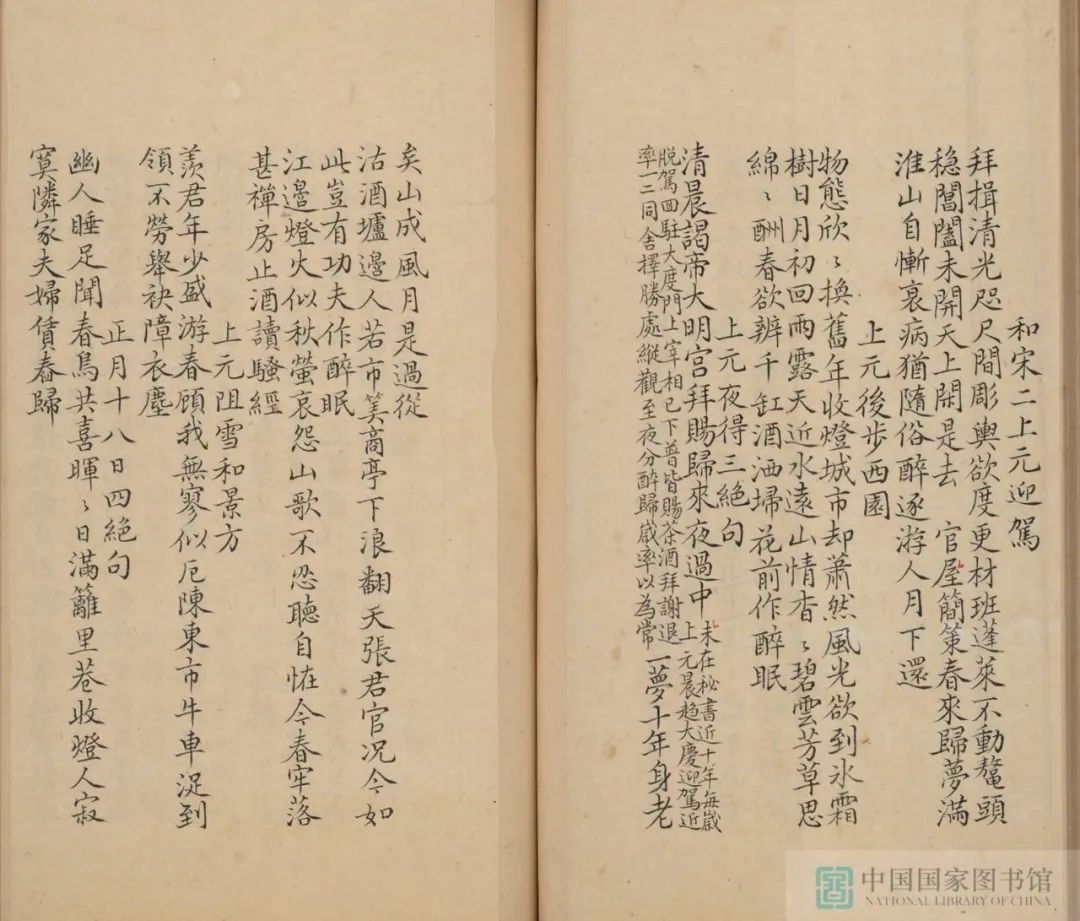 和宋二上元迎駕
拜揖清光咫尺間彫輿欲度更材班蓬萊不動鼇頭
穏閶闔未開天上閑是去　官屋簡策春來歸夢滿
淮山自慚衰病猶隨俗醉逐游人月下還
上元後步西園
物態欣〻換舊年收燈城市却蕭然風光欲到氷霜
樹日月初回雨露天近水遠山情杳〻碧雲芳草思
綿〻酬春欲辨千缸酒洒埽花前作醉眠
上元夜得三絕句
清晨謁帝大明宮拜賜歸來夜過中未在秘書近十年每歲
上元晨趨大慶迎駕近
脫駕回駐大度門上宰相已下普皆賜茶酒拜謝退
率一二同舍擇勝處縱觀至夜分醉歸歲率以為常一夢十年身老
矣山成風月是過從
沽酒壚邊人若市筭商亭下浪翻天張君官况今如
此豈有功夫作醉眠
江邉燈火似秋螢哀怨山歌不忍聽自恠今春牢落
甚禪房止酒讀騷經
上元阻雪和景方
羨君年少盛游春顧我無寥似厄陳東市牛車浞到
領不勞舉袂障衣塵
正月十八日四絕句
幽人睡足聞春鳥共喜暉〻日滿籬里巷收燈人寂
寞隣家夫婦賃舂歸
中国国家图书馆
NATIONAL LIBRARY OF CHINA